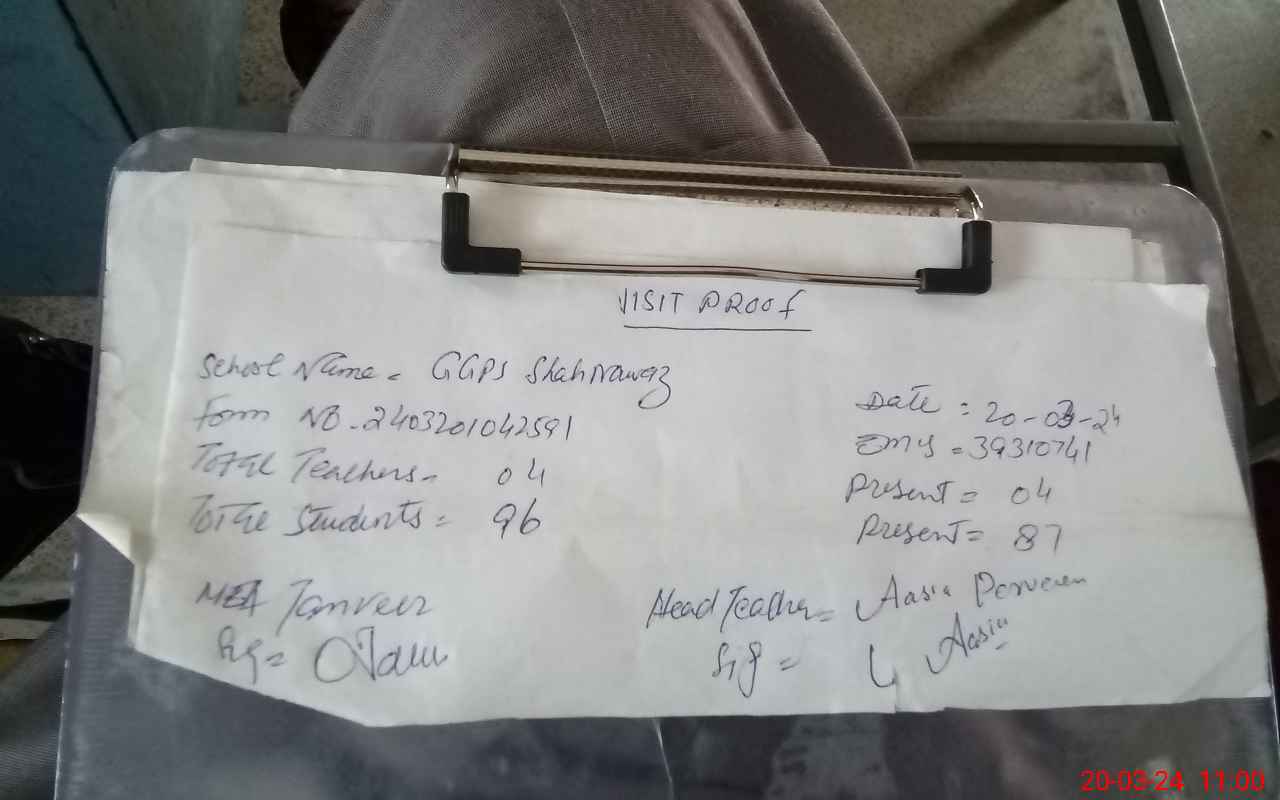 VISIT PROOF
School Name = GGPS Shahnawaz
Date : 20-03-24
Form NO. 2403201042591
EMIS = 39310741
Total Teachers = 04
Present = 04
Total Students = 96
Present = 87
MEA Tanveer
Head Teacher = Aasia Perveen
Sig =
Sig = Aasia
20-03-24 11:00